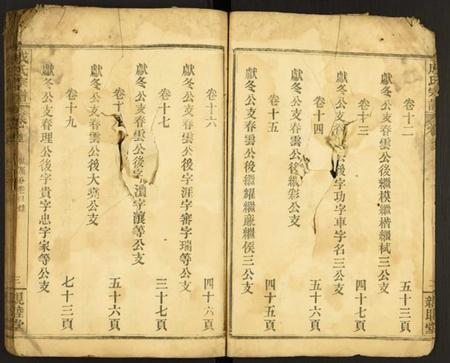 卷十二
獻冬公支春雲公後繼模繼楷繼栻三公支
五十三頁
卷十三
獻冬公支春雲公後字功字車字名三公支
卷十四
獻冬公支春雲公後繼彩公支
五十六頁
卷十五
獻冬公支春雲公後繼耀繼廉繼侯三公支
三十六頁
親睦堂
卷十六
獻冬公支春雲公後字涯字審字瑞等公支
四十六頁
卷十七
獻冬公支春雲公後字濆字瀼等公支
三十七頁
卷十
獻冬公支春雲公後大公支
五十六頁
卷十九
獻冬公支春理公後字貴字忠字家等公支
七十三頁
三
親睦堂